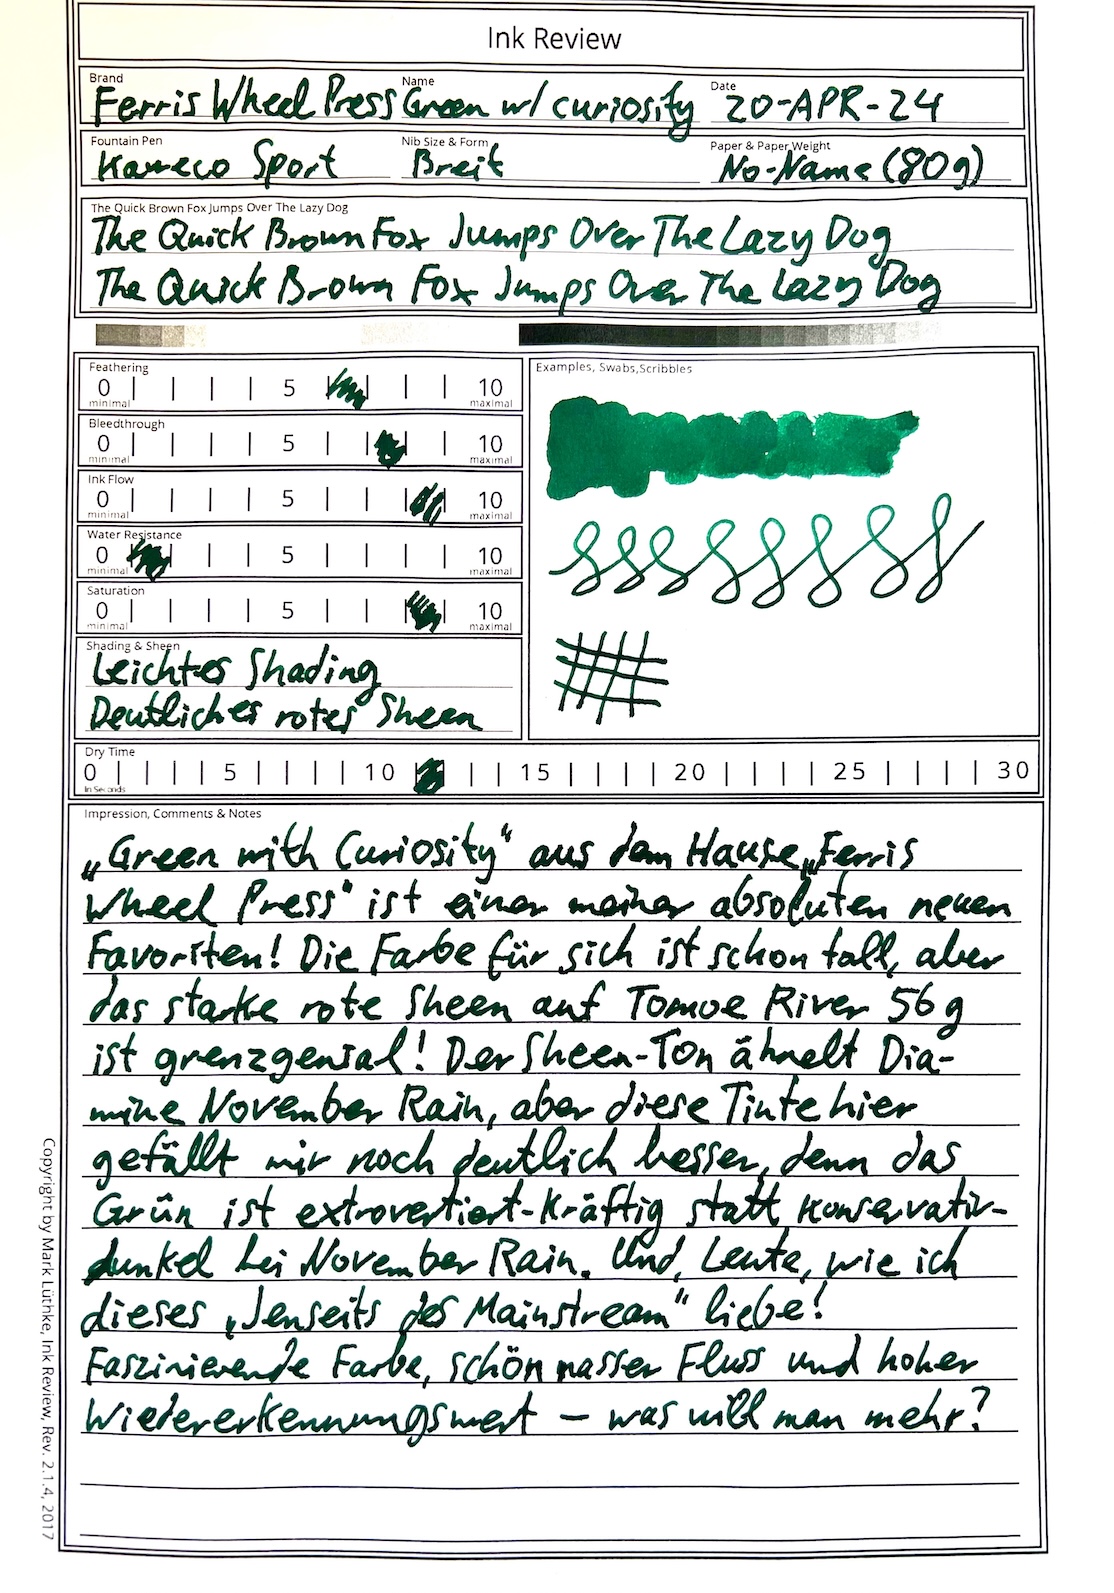 Ink Review
Brand
Ferris Wheel Press
Name
Green w/ curiosity
Date
20-APR-24
Fountain Pen
Kaweco Sport
Nib Size & Form
Breit
Paper & Paper Weight
No-Name (80g)
The Quick Brown Fox Jumps Over The Lazy Dog
The Quick Brown Fox Jumps Over The Lazy Dog
The Quick Brown Fox Jumps Over The Lazy Dog
Feathering
0 5 10
minimal maximal
Bleedthrough
0 5 10
minimal maximal
Ink Flow
0 5 10
minimal maximal
Water Resistance
0 5 10
minimal maximal
Saturation
0 5 10
minimal maximal
Shading & Sheen
Leichtes Shading
Deutliches rotes Sheen
Examples, Swabs,Scribbles
Dry Time
0 5 10 15 20 25 30
In Seconds
Impression, Comments & Notes
„Green with Curiosity“ aus dem Hause „Ferris
Wheel Press“ ist einer meiner absoluten neuen
Favoriten! Die Farbe für sich ist schon toll, aber
das starke rote Sheen auf Tomoe River 56 g
ist grenzgenial! Der Sheen-Ton ähnelt Dia-
mine November Rain, aber diese Tinte hier
gefällt mir noch deutlich besser, denn das
Grün ist extrovertiert-kräftig statt konservativ-
dunkel bei November Rain. Und, Leute, wie ich
dieses „Jenseits des Mainstream“ liebe!
Faszinierende Farbe, schön nasser Fluss und hoher
Wiedererkennungswert – was will man mehr?
Copyright by Mark Lüthke, Ink Review, Rev. 2.1.4, 2017